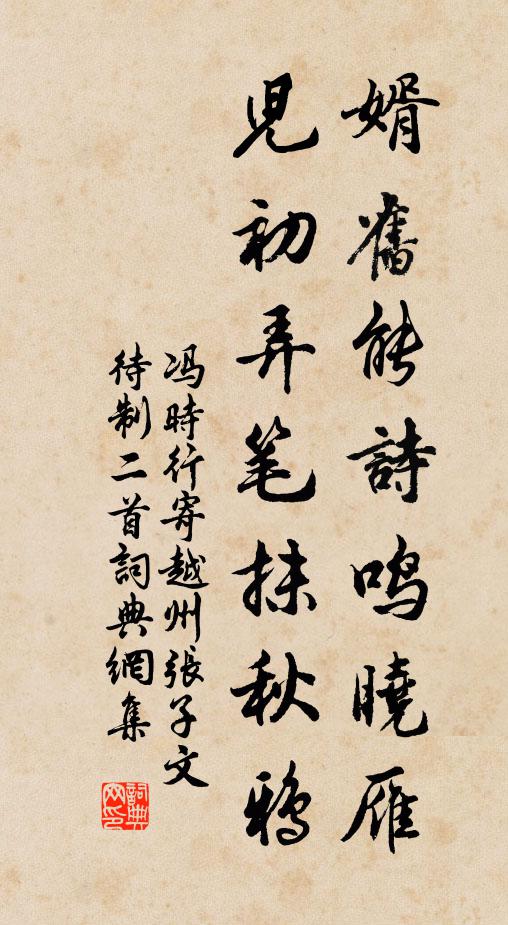 婿舊能詩鸣曉雁
児初弄笔抹秋鸦
冯時行寄越州張子文
待制二首詞典網集
詞典网印